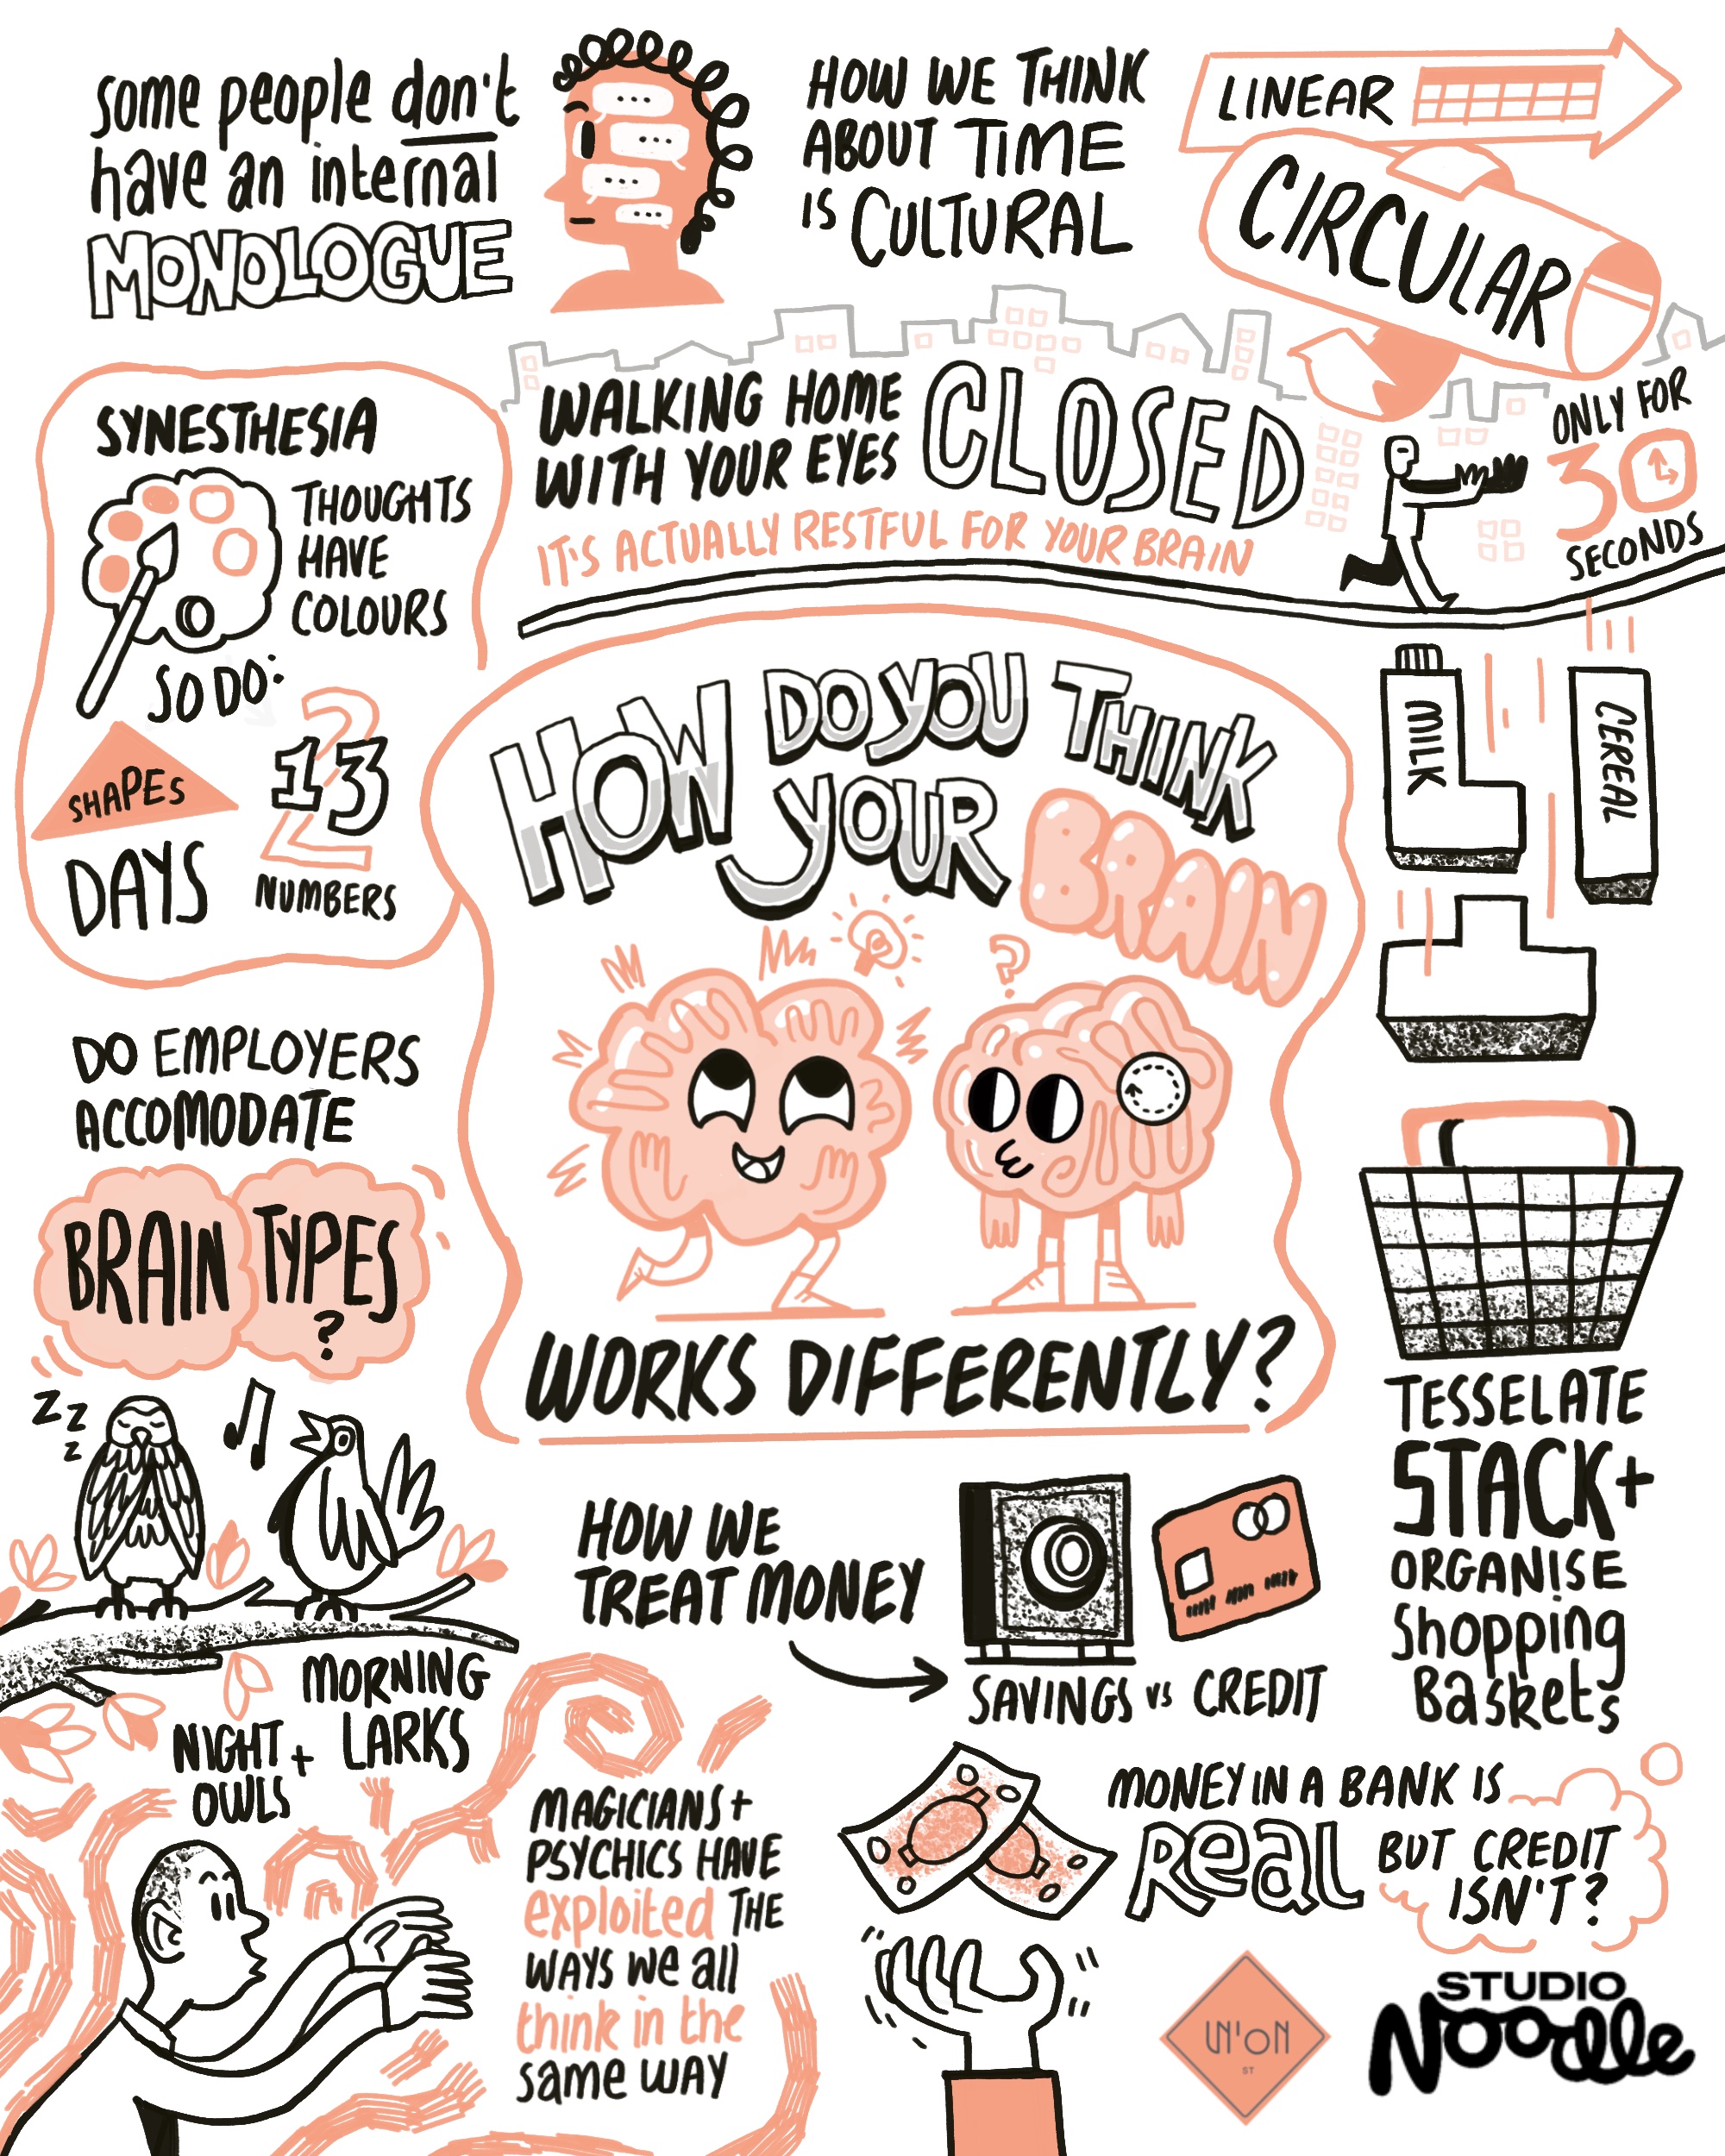 some people don't
have an internal
MONOLOGUE
HOW WE THINK
ABOUT TIME
IS CULTURAL
LINEAR
CIRCULAR
WALKING HOME
WITH YOUR EYES
CLOSED
IT'S ACTUALLY RESTFUL FOR YOUR BRAIN
ONLY FOR
30
SECONDS
SYNESTHESIA
THOUGHTS
HAVE
COLOURS
SO DO:
SHAPES
123
DAYS
NUMBERS
HOW DO YOU THINK
YOUR BRAIN
?
WORKS DIFFERENTLY?
MILK
CEREAL
TESSELATE
STACK+
ORGANISE
Shopping
Baskets
DO EMPLOYERS
ACCOMODATE
BRAIN TYPES
?
ZZ
Z
MORNING
LARKS
NIGHT +
OWLS
HOW WE
TREAT MONEY
SAVINGS vs CREDIT
MONEY IN A BANK IS
Real
BUT CREDIT
ISN'T?
MAGICIANS +
PSYCHICS HAVE
exploited THE
WAYS we all
think in the
same WAY
UN'ON
ST
STUDIO
Noodle